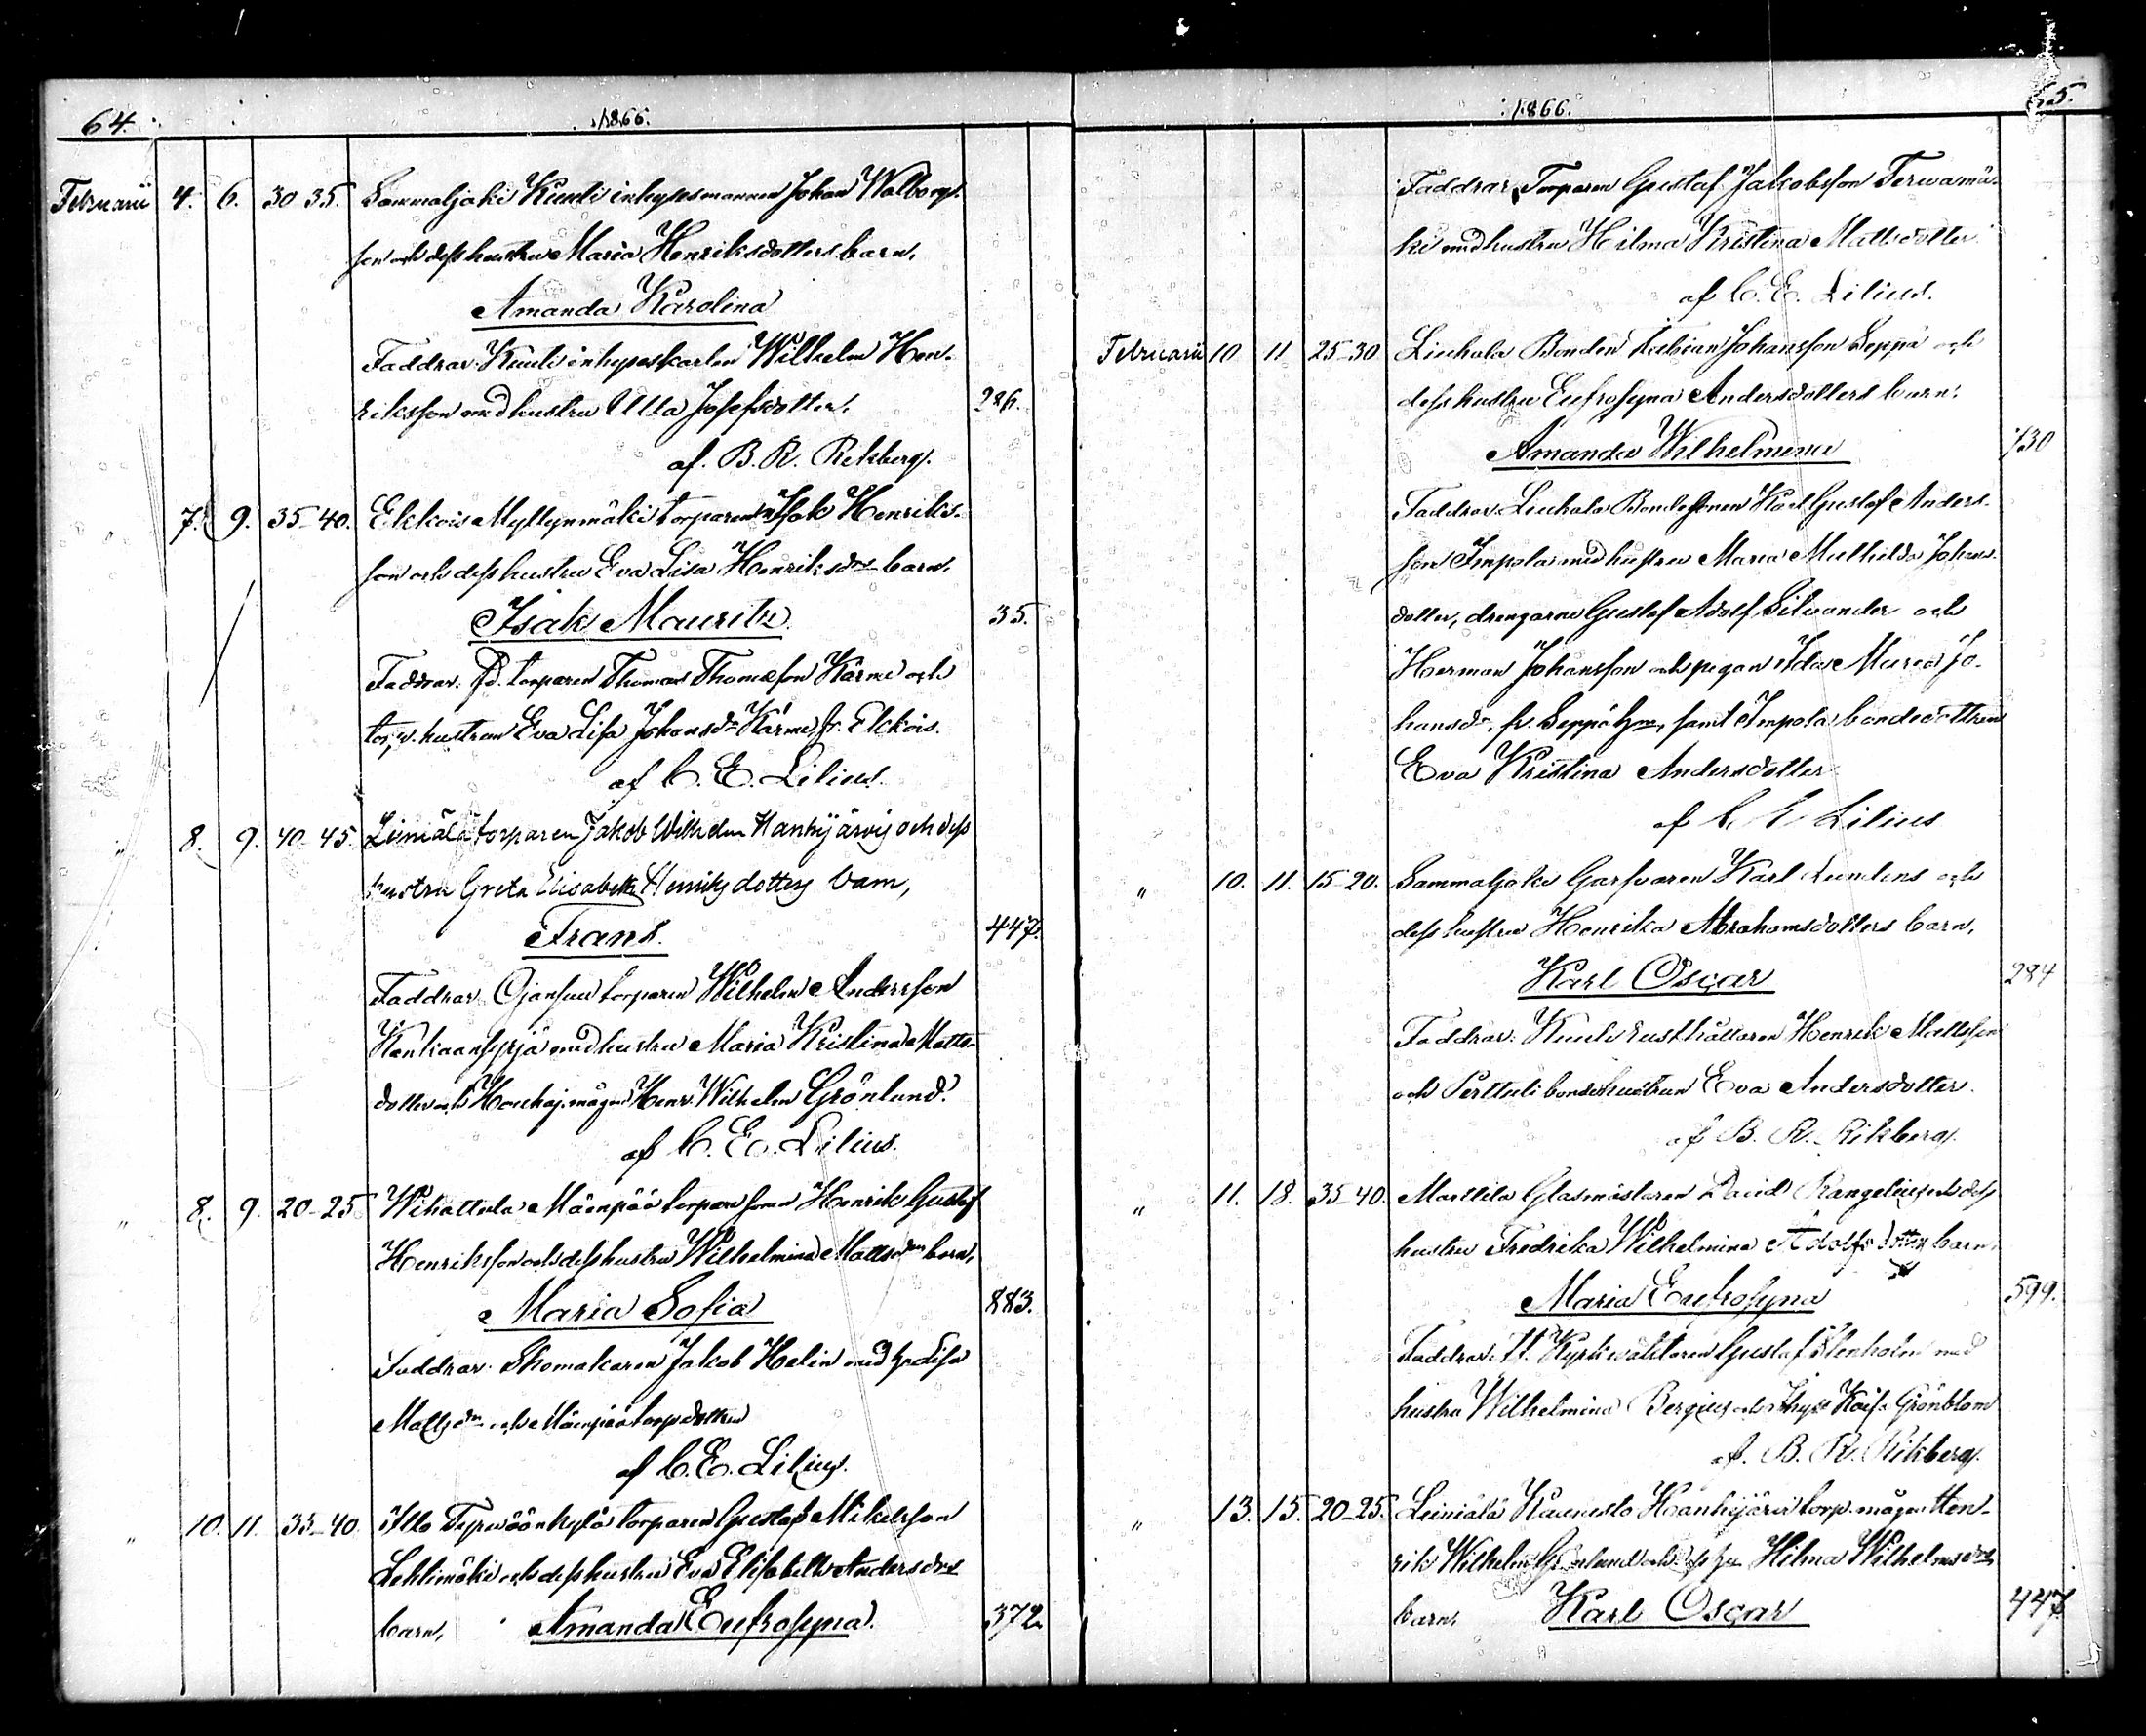 64.
1866.
Februarii 4. 6. 30 35. Sammaljoki Kuuli inhysesmannen Johan Walborgs-
son och dess hustru Maria Henriksdotters barn,
Amanda Karolina
Faddrar: Kuuli inhyseskarlen Wilhelm Hen-
riksson med hustru Ulla Josefsdotter. 286.
af. B. R. Rikberg.
7. 9. 35-40. Ekkois Myllynmäki torparen Isak Henriks-
son och dess hustru Eva Lisa Henriksdrs barn,
Isak Mauritz 35.
Faddrar: fd. torparen Thomas Thomasson Kärme och
torp. hustrun Eva Lisa Johansdr Kärme fr. Ekkois.
af C. E. Lilius.
" 8. 9. 40-45. Liuniälä torparen Jakob Wilhelm Hankijärvis och dess
hustru Greta Elisabeth Henriksdotters barn,
Frans. 447.
Faddrar: Ojansuu torparen Wilhelm Andersson
Kankaansyrjä med hustru Maria Kristina Matts-
dotter och mågen Henr. Wilhelm Grönlund.
af C. E. Lilius.
" 8. 9. 20-25 Wihattula Mäenpää torpare sonen Henrik Gustaf
Henriksson och dess hustru Wilhelmina Mattsdrs barn,
Maria Sofia 883.
Faddrar: Skomakaren Jakob Helin med h. Lisa
Mattsdr och Mäenpää torpdottren
af C. E. Lilius.
" 10. 11. 35-40. Illo Tyrwäänkylä torparen Gustaf Mikelsson
Lehtimäki och dess hustru Eva Elisabeth Andersdrs
barn, Amanda Eufrosyna. 372
1866.
65.
Faddrar: Torparen Gustaf Jakobsson Terwamä-
ki med hustru Hilma Kristina Mattsdotter
af C. E. Lilius.
Februarii 10. 11 25-30. Liuhala Bonden Fabian Johansson Seppä och
dess hustru Eufrosyna Andersdotters barn:
Amanda Wilhelmina 730
Faddrar: Liuhala Bondesonen Karl Gustaf Anders-
son Impola med hustru Maria Mathilda Johans-
dotter, drengarne Gustaf Adolf Silvander och
Herman Johansson och pigan Ida Maria Jo-
hansdr. fr. Seppä hn, samt Impola bondedottren
Eva Kristina Andersdotter
af C E Lilius
" 10. 11. 15-20. Sammaljoki Garfvaren Karl Lundens och
dess hustru Henrika Abrahamsdotters barn,
Karl Oscar 284
Faddrar: Kuuli rusthållaren Henrik Mattsson
och Perttuli bondehustrun Eva Andersdotter.
af B. R. Rikberg.
" 11. 18. 35-40. Marttila Glasmästaren David Rangelius och dess
hustru Fredrika Wilhelmina Adolfsdotters barn.
Maria Eufrosyna 599.
Faddrar: Kyrkväktaren Gustaf Stenholm med
hustru Wilhelmina Bergius och Grönblom
af. B. R. Rikberg.
" 13. 15. 20-25. Leiniälä Kaunisto Hankijärvi torp. mågen Hen-
rik Wilhelm Grönlund och dess hu Hilma Wilhelmsdrs
barn, Karl Oscar 447